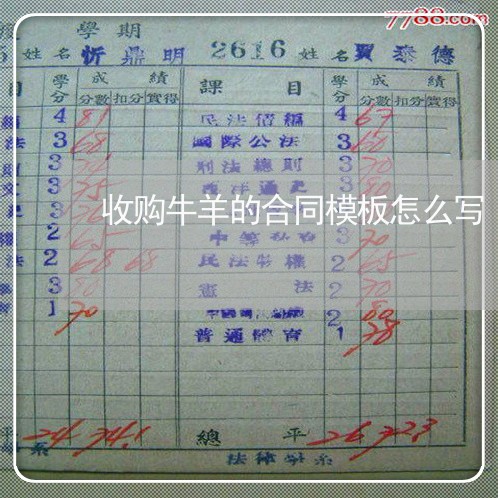 7788.com
學期
姓名 忻鼎明 2616 姓名 賈泰德
目 學分 成績 課目 學分 成績
分數 扣分 實得 分數 扣分 實得
4 81 民法債編 4 67
法 3 68 國際公法 3 60
3 刑法總則 3 70
文 3 75 西洋通史 3 80
收购牛羊的合同模板怎么写
2 65 3 70
法 2 68 68 民法物權 2 65
3 80 憲法 2 70
1 70 2 80
普通體育 1 78
24 74.1 總平 26 72.3
系 法律學系